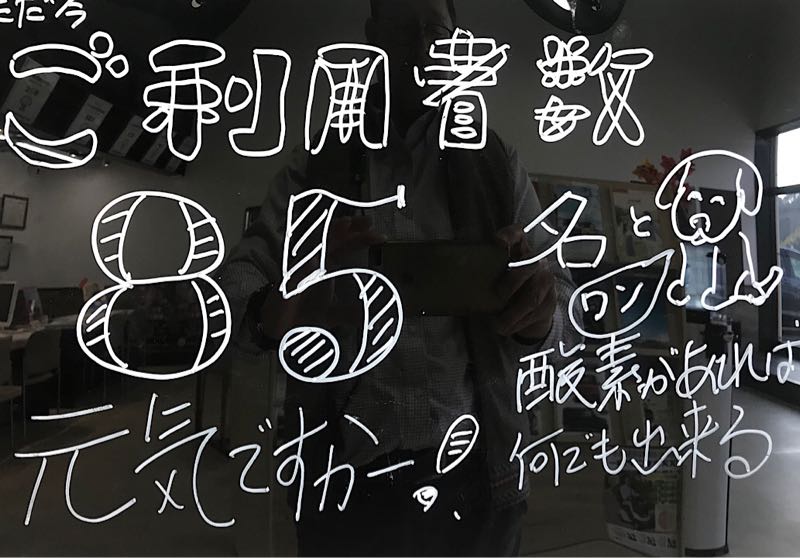 ただ今
ご利用者数
85名と
ワン
酸素があれば
何でも出来る
元気ですかー!